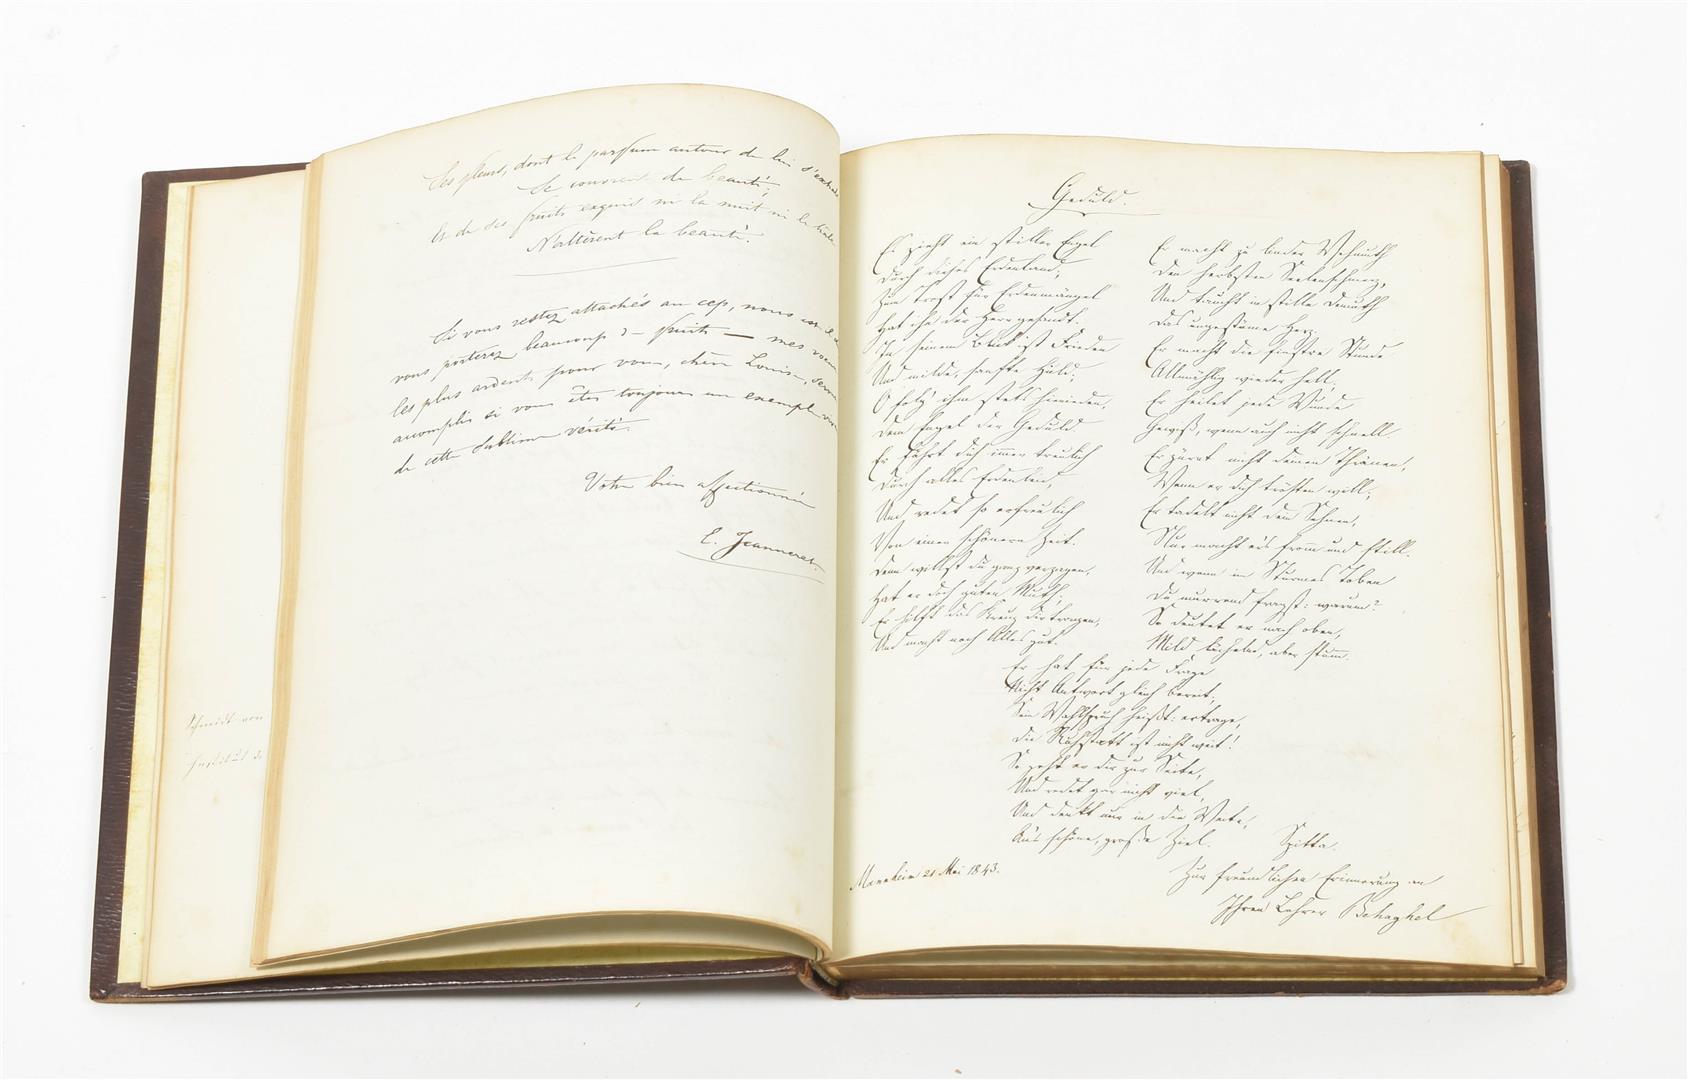 Ses fleurs, dont le parfum autour de lui s'exhale
Se couvrent de beauté;
Et de ses fruits exquis ni la nuit ni le hâle
N'altèrent la beauté.
Si vous restez attachés au cep, nous est-il
vous porterez beaucoup de fruits — mes voeux
les plus ardents pour vous, chère Louise, seront
accomplis si vous êtes toujours un exemple
de cette sublime vérité.
Votre bien affectionnée
E. Jeanneret.
Schmidt von
Institut d.
Geduld.
Es zieht ein stiller Engel
Durch dieses Erdenland;
Zum Trost für Erdenmängel
Hat ihn der Herr gesandt.
In seinem Blick ist Frieden
Und milde, sanfte Huld;
O folg' ihm stets hienieden,
Dem Engel der Geduld
Er führt dich immer treulich
Durch alles Erdenleid,
Und redet so erfreulich
Von einer schönern Zeit.
Denn willst du ganz verzagen,
Hat er doch guten Muth;
Er hilft das Kreuz dir tragen,
Und macht noch Alles gut.
Er macht zu linder Wehmuth
Den herbsten Seelenschmerz,
Und taucht in stille Demuth
Das ungestüme Herz.
Er macht die finstre Stunde
Allmählig wieder hell.
Er heilet jede Wunde
Gewiß, wenn auch nicht schnell.
Er zürnt nicht deinen Thränen,
Wenn er dich trösten will;
Er tadelt nicht dein Sehnen,
Nur macht er's fromm und still.
Und wenn im Sturmes Toben
Du murrend fragst: warum?
So deutet er nach oben,
Mild lächelnd, aber stumm.
Er hat für jede Frage
Nicht Antwort gleich bereit;
Sein Wahlspruch heißt: ertrage,
Die Ruhstatt ist nicht weit!
So geht er dir zur Seite,
Und redet gar nicht viel,
Und denkt nur in die Weite,
An's schöne, große Ziel. Spitta.
Mannheim 21 Mai 1843.
Zur freundlichen Erinnerung an
Ihren Lehrer Behaghel